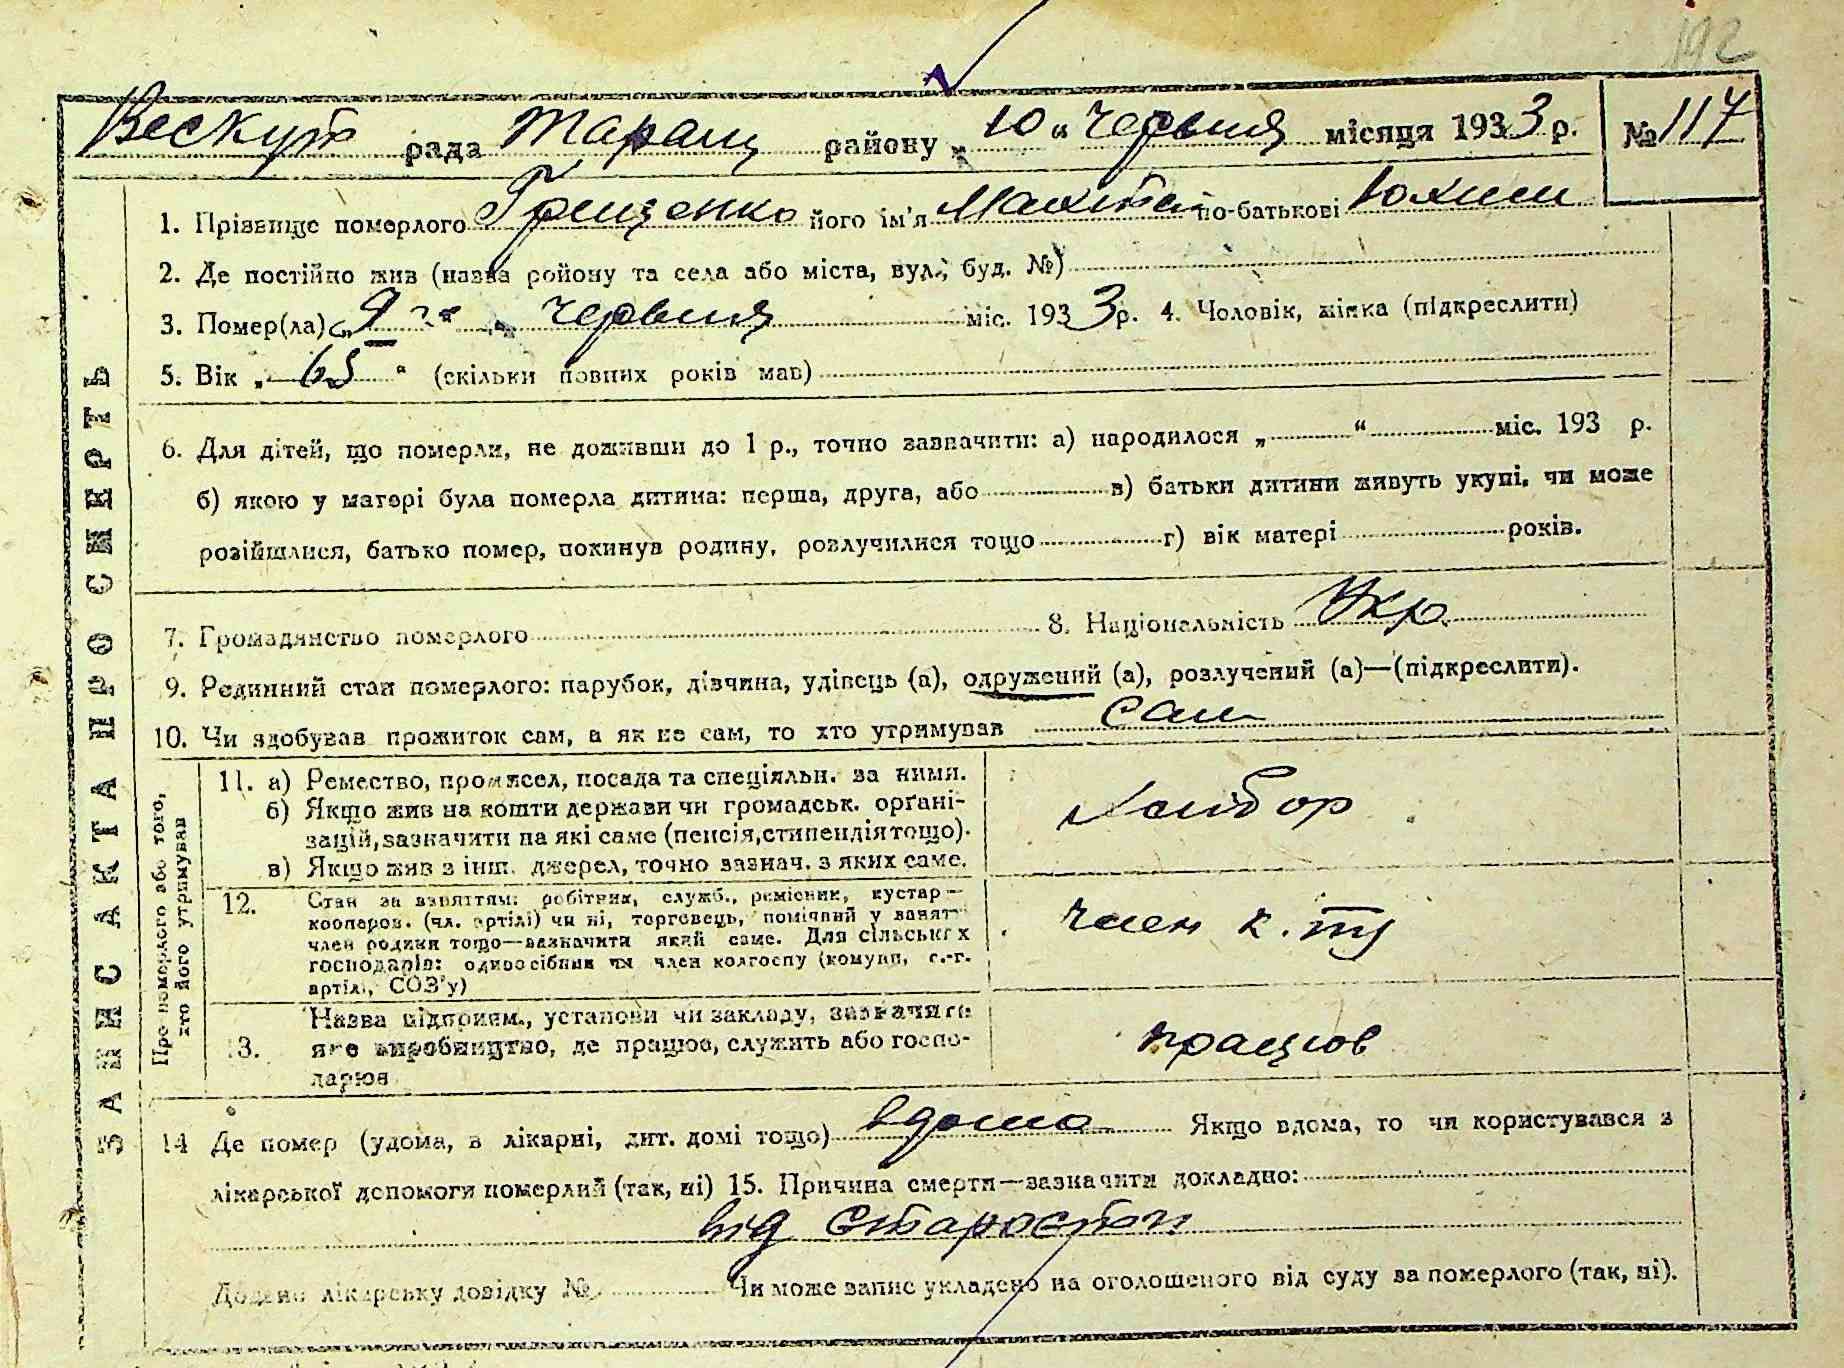 192
Вескут рада Таращ району „10“ червня місяця 1933 р. № 117
1. Прізвище померлого Грищенко його ім'я по-батькові Юхим
2. Де постійно жив (назва району та села або міста, вул., буд. №)
3. Помер(ла) „9“ червня міс. 1933 р. 4. Чоловік, жінка (підкреслити)
5. Вік „65“ (скільки повних років мав)
6. Для дітей, що померли, не доживши до 1 р., точно зазначити: а) народилося „ “ міс. 193 р.
б) якою у матері була померла дитина: перша, друга, або в) батьки дитини живуть укупі, чи може
розійшлися, батько помер, покинув родину, розлучилися тощо г) вік матері років.
7. Громадянство померлого 8. Національність Укр.
9. Родинний стан померлого: парубок, дівчина, удівець (а), одружений (а), розлучений (а)—(підкреслити).
10. Чи здобував прожиток сам, а як не сам, то хто утримував сам
ЗАПИС АКТА ПРО СМЕРТЬ
Про померлого або того, хто його утримував
11. а) Ремество, промисел, посада та спеціяльн. за ними.
б) Якщо жив на кошти держави чи громадськ. орґані-
зацій, зазначити на які саме (пенсія, стипендія тощо).
в) Якщо жив з інш. джерел, точно зазнач. з яких саме.
Хлібор
12. Стан за заняттям: робітник, служб., ремісник, кустар—
кооперов. (чл. артілі) чи ні, торговець, помічний у занят
член родини тощо—зазначити який саме. Для сільських
господарів: одноосібник чи член колгоспу (комуни, с.-г.
артілі, СОЗ'у)
член к.
13. Назва підприєм., установи чи закладу, зазначити
яке виробництво, де працює, служить або госпо-
дарює
працюв
14 Де помер (удома, в лікарні, дит. домі тощо) вдома Якщо вдома, то чи користувався з
лікарської допомоги померлий (так, ні) 15. Причина смерти—зазначити докладно:
від старости
Додано лікарську довідку № Чи може запис укладено на оголошеного від суду за померлого (так, ні).